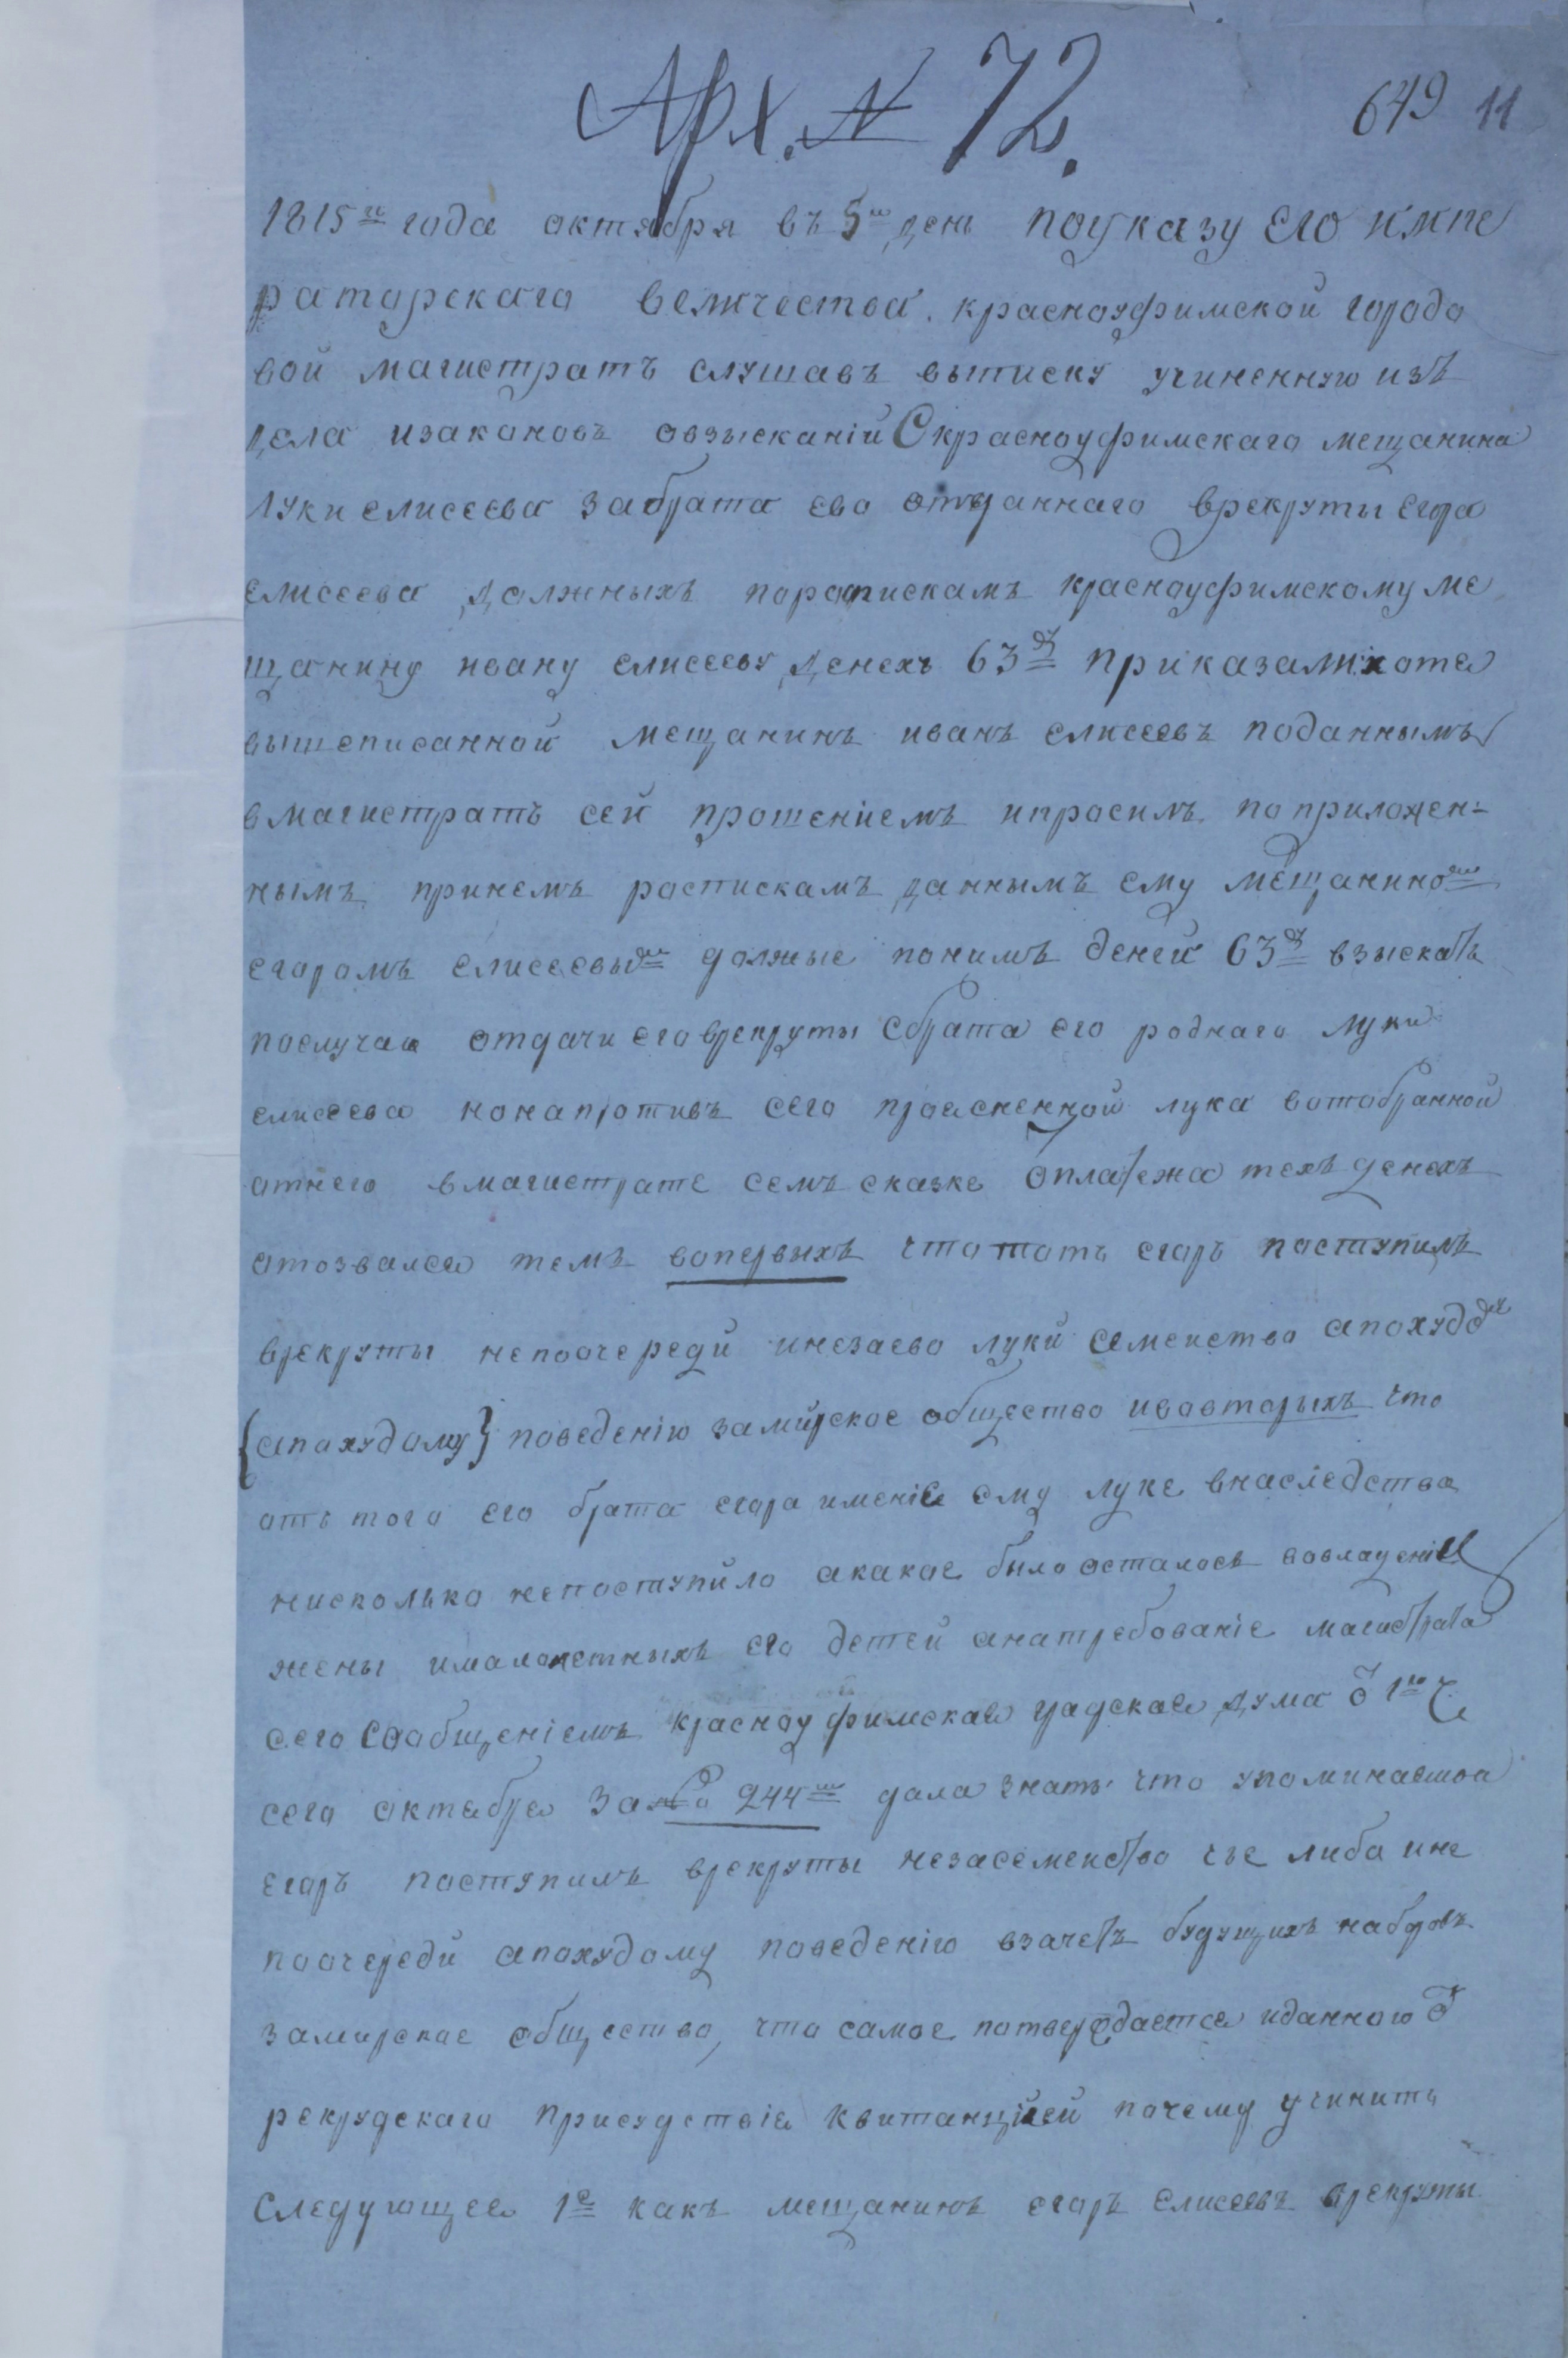 Арх. № 72.
649 11
1815го года октября въ 5й день поуказу Его импе
раторскаго величества красноуфимской городо
вой магистратъ слушавъ выписку учиненную изъ
дела изаконовъ овзысканiи Скрасноуфимскаго мещанина
луки елисеева забрата ево отданнаго врекруты егора
елисеева должныхъ пороспискамъ красноуфимскому ме
щанину ивану елисееву денехъ 63 приказали хотя
вышеписанной мещанинъ иванъ елисеевъ поданнымъ
вмагистратъ сей прошенiемъ ипросилъ поприложен-
нымъ принемъ роспискамъ даннымъ ему мещанином
егоромъ елисеевым должные понимъ деней 63 взыскать
послучаю отдачи его врекруты Сбрата его роднаго луки
елисеева нонапротивъ сего проясненной лука вотобранной
отнего вмагистрате семъ сказке оплатежа техъ денехъ
отозвался темъ вопервыхъ чтототъ егоръ поступилъ
врекруты непоочереди инезаево луки семейство апохудо
{апохудому} поведенiю замирское общество ивовторыхъ что
отъ того его брата егора именiе ему луке внаследства
нисколько непоступило акакое было осталось вовладенiи
жены ималолетныхъ его детей анатребованiе магистрата
сего сообщенiемъ красноуфимская градская дума ѿ 1го ч
сего октября за № 244м дала знать что упоминаемой
егоръ поступилъ врекруты незасемейство чье либо ине
поочереди апохудому поведенiю взачетъ будущихъ наборовъ
замирское общество, что самое потверждается иданною ѿ
рекрудскаго присудствiя квитанцiей почему учинить
следующее 1е какъ мещанинъ егоръ елисеевъ врекруты